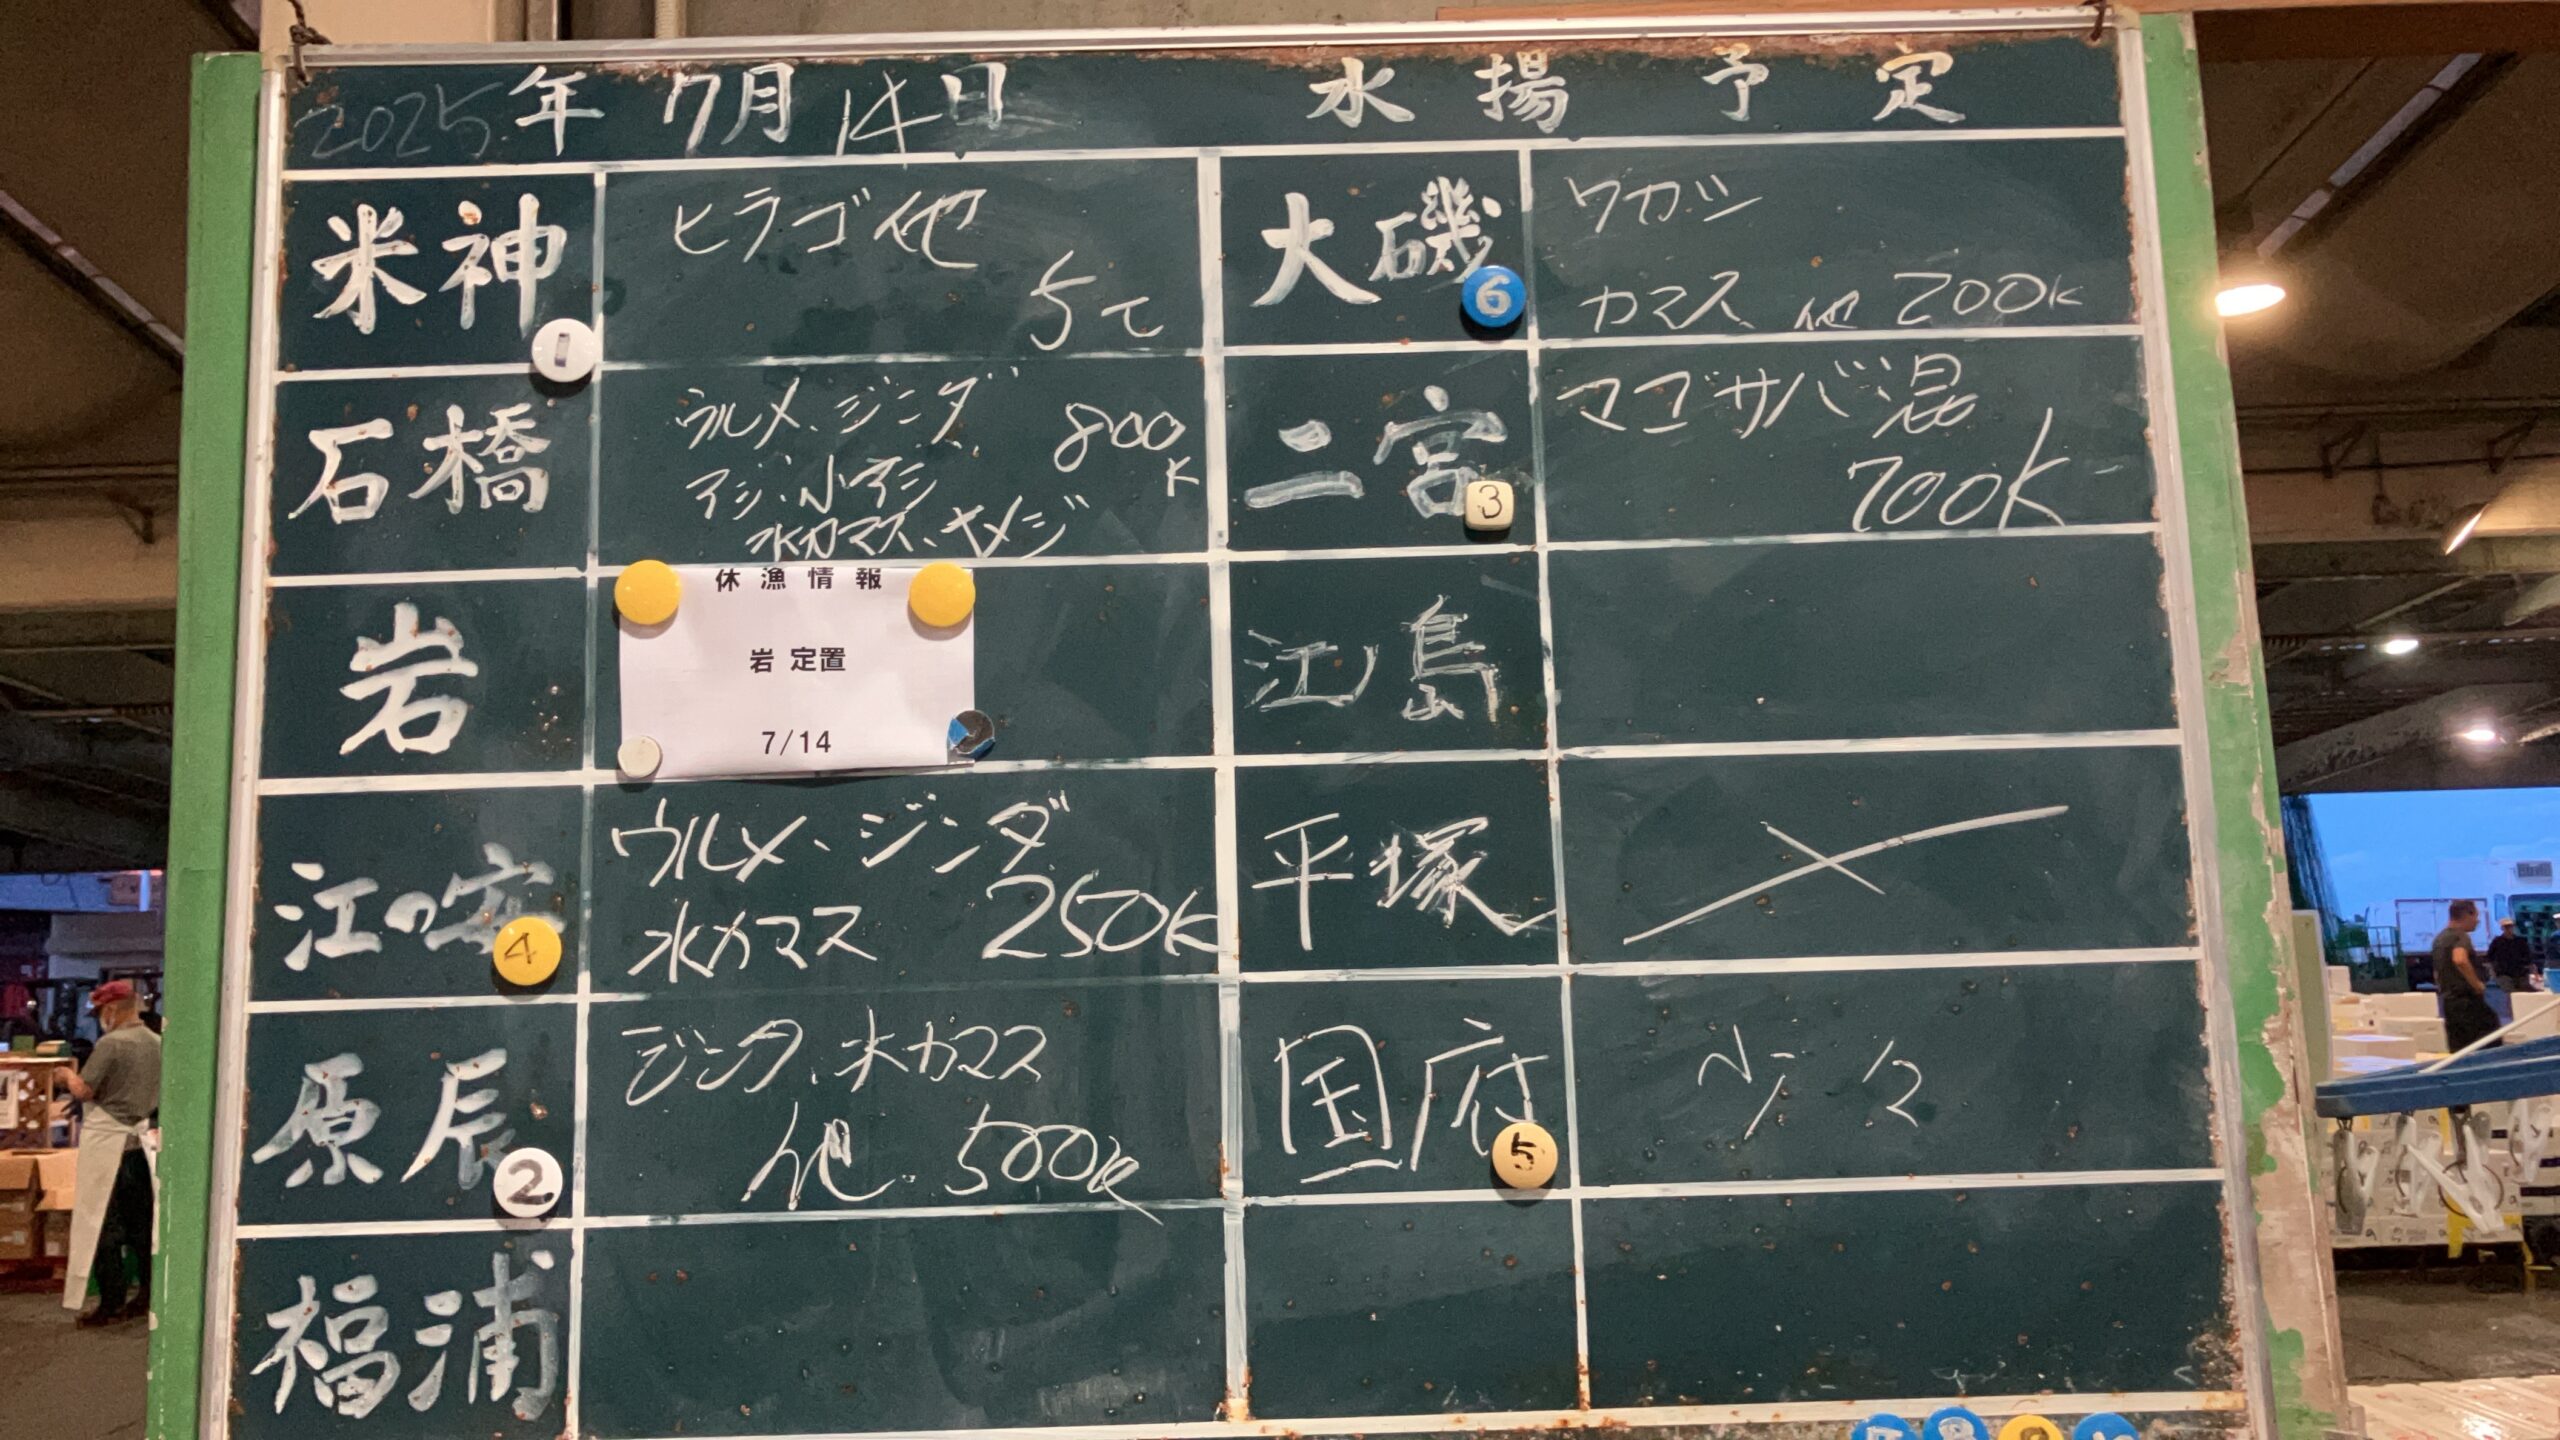 2025年 7月14日 水揚予定
米神
1
ヒラゴ他
5t
石橋
ウルメ、ジンダ
800K
アジ、小アジ
水カマス、
岩
休漁情報
岩 定置
7/14
江の安
4
ウルメ、ジンダ
水カマス 250K
原辰
2
ジンダ、水カマス
他 500K
福浦
大磯
6
ワカシ
カマス 他 200K
二宮
3
マゴサバ混
700K
江ノ島
平塚
国府
5
少々